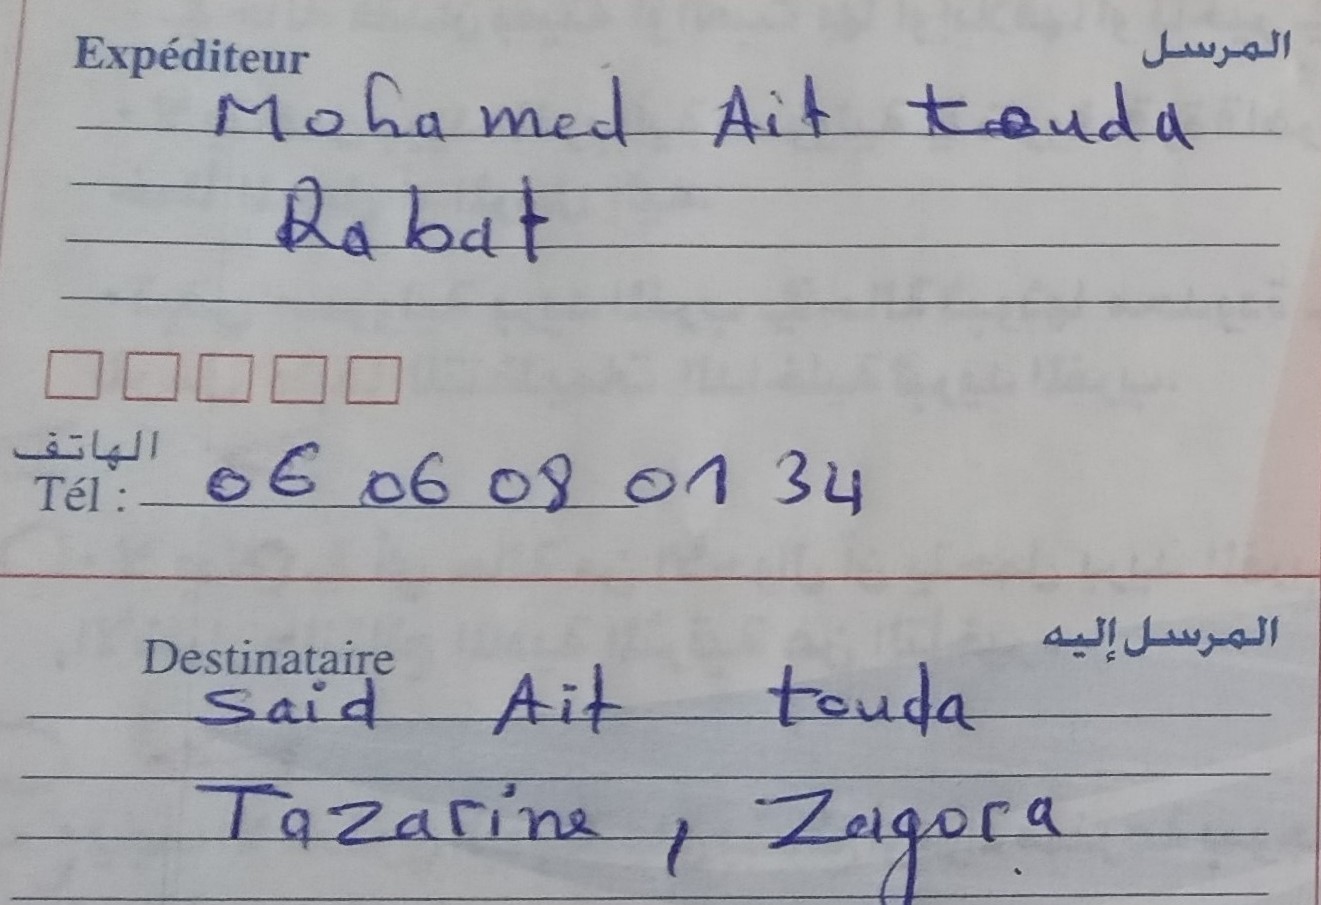 Expéditeur المرسل
Mohamed Ait touda
Rabat
الهاتف
Tél : 06 06 08 01 34
Destinataire المرسل إليه
Said Ait touda
Tazarine , Zagora